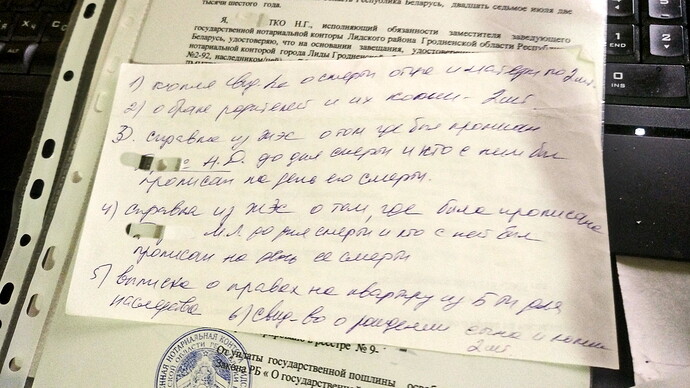 Республика Беларусь, двадцать седьмое июля две
тысячи шестого года.
Я, ТКО Н.Г., исполняющий обязанности заместителя заведующего
государственной нотариальной конторы Лидского района Гродненской области Респуб
Беларусь, удостоверяю, что на основании завещания, удостове
нотариальной конторой города Лиды Гродненс
№2-92, наследником
1) копия свид-ва о смерти отца и матери по 2 шт.
2) о браке родителей и их копии - 2 шт.
3) справка из ЖЭС о том где был прописан
А.О. до дня смерти и кто с ним был
прописан на день его смерти.
4) справка из ЖЭС о том, где была прописана
М.Л. до дня смерти и кто с ней был
прописан на день ее смерти
5) выписка о правах на квартиру из БТИ для
наследства 6) свид-во о рождении сына и копии
2 шт.
в реестре № 9-
От уплаты государственной пошлины освоб
Закона РБ « О государственн